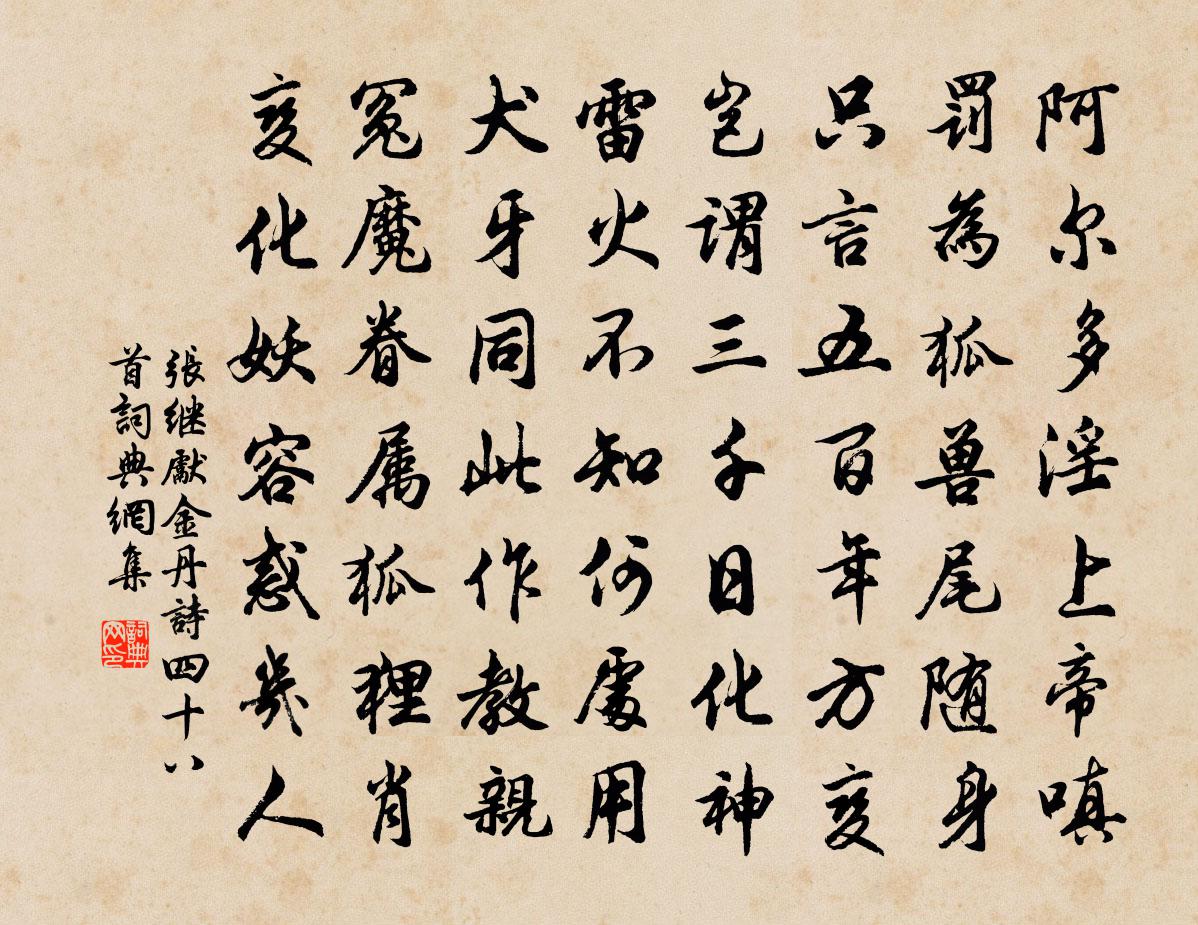 阿尔多淫上帝嗔
罚為狐兽尾随身
只言五百年方变
岂谓三千日化神
雷火不知何處用
犬牙同此作教親
冤魔眷属狐狸肖
变化妖容惑幾人
張继獻金丹詩四十八
首詞典網集
詞典网印